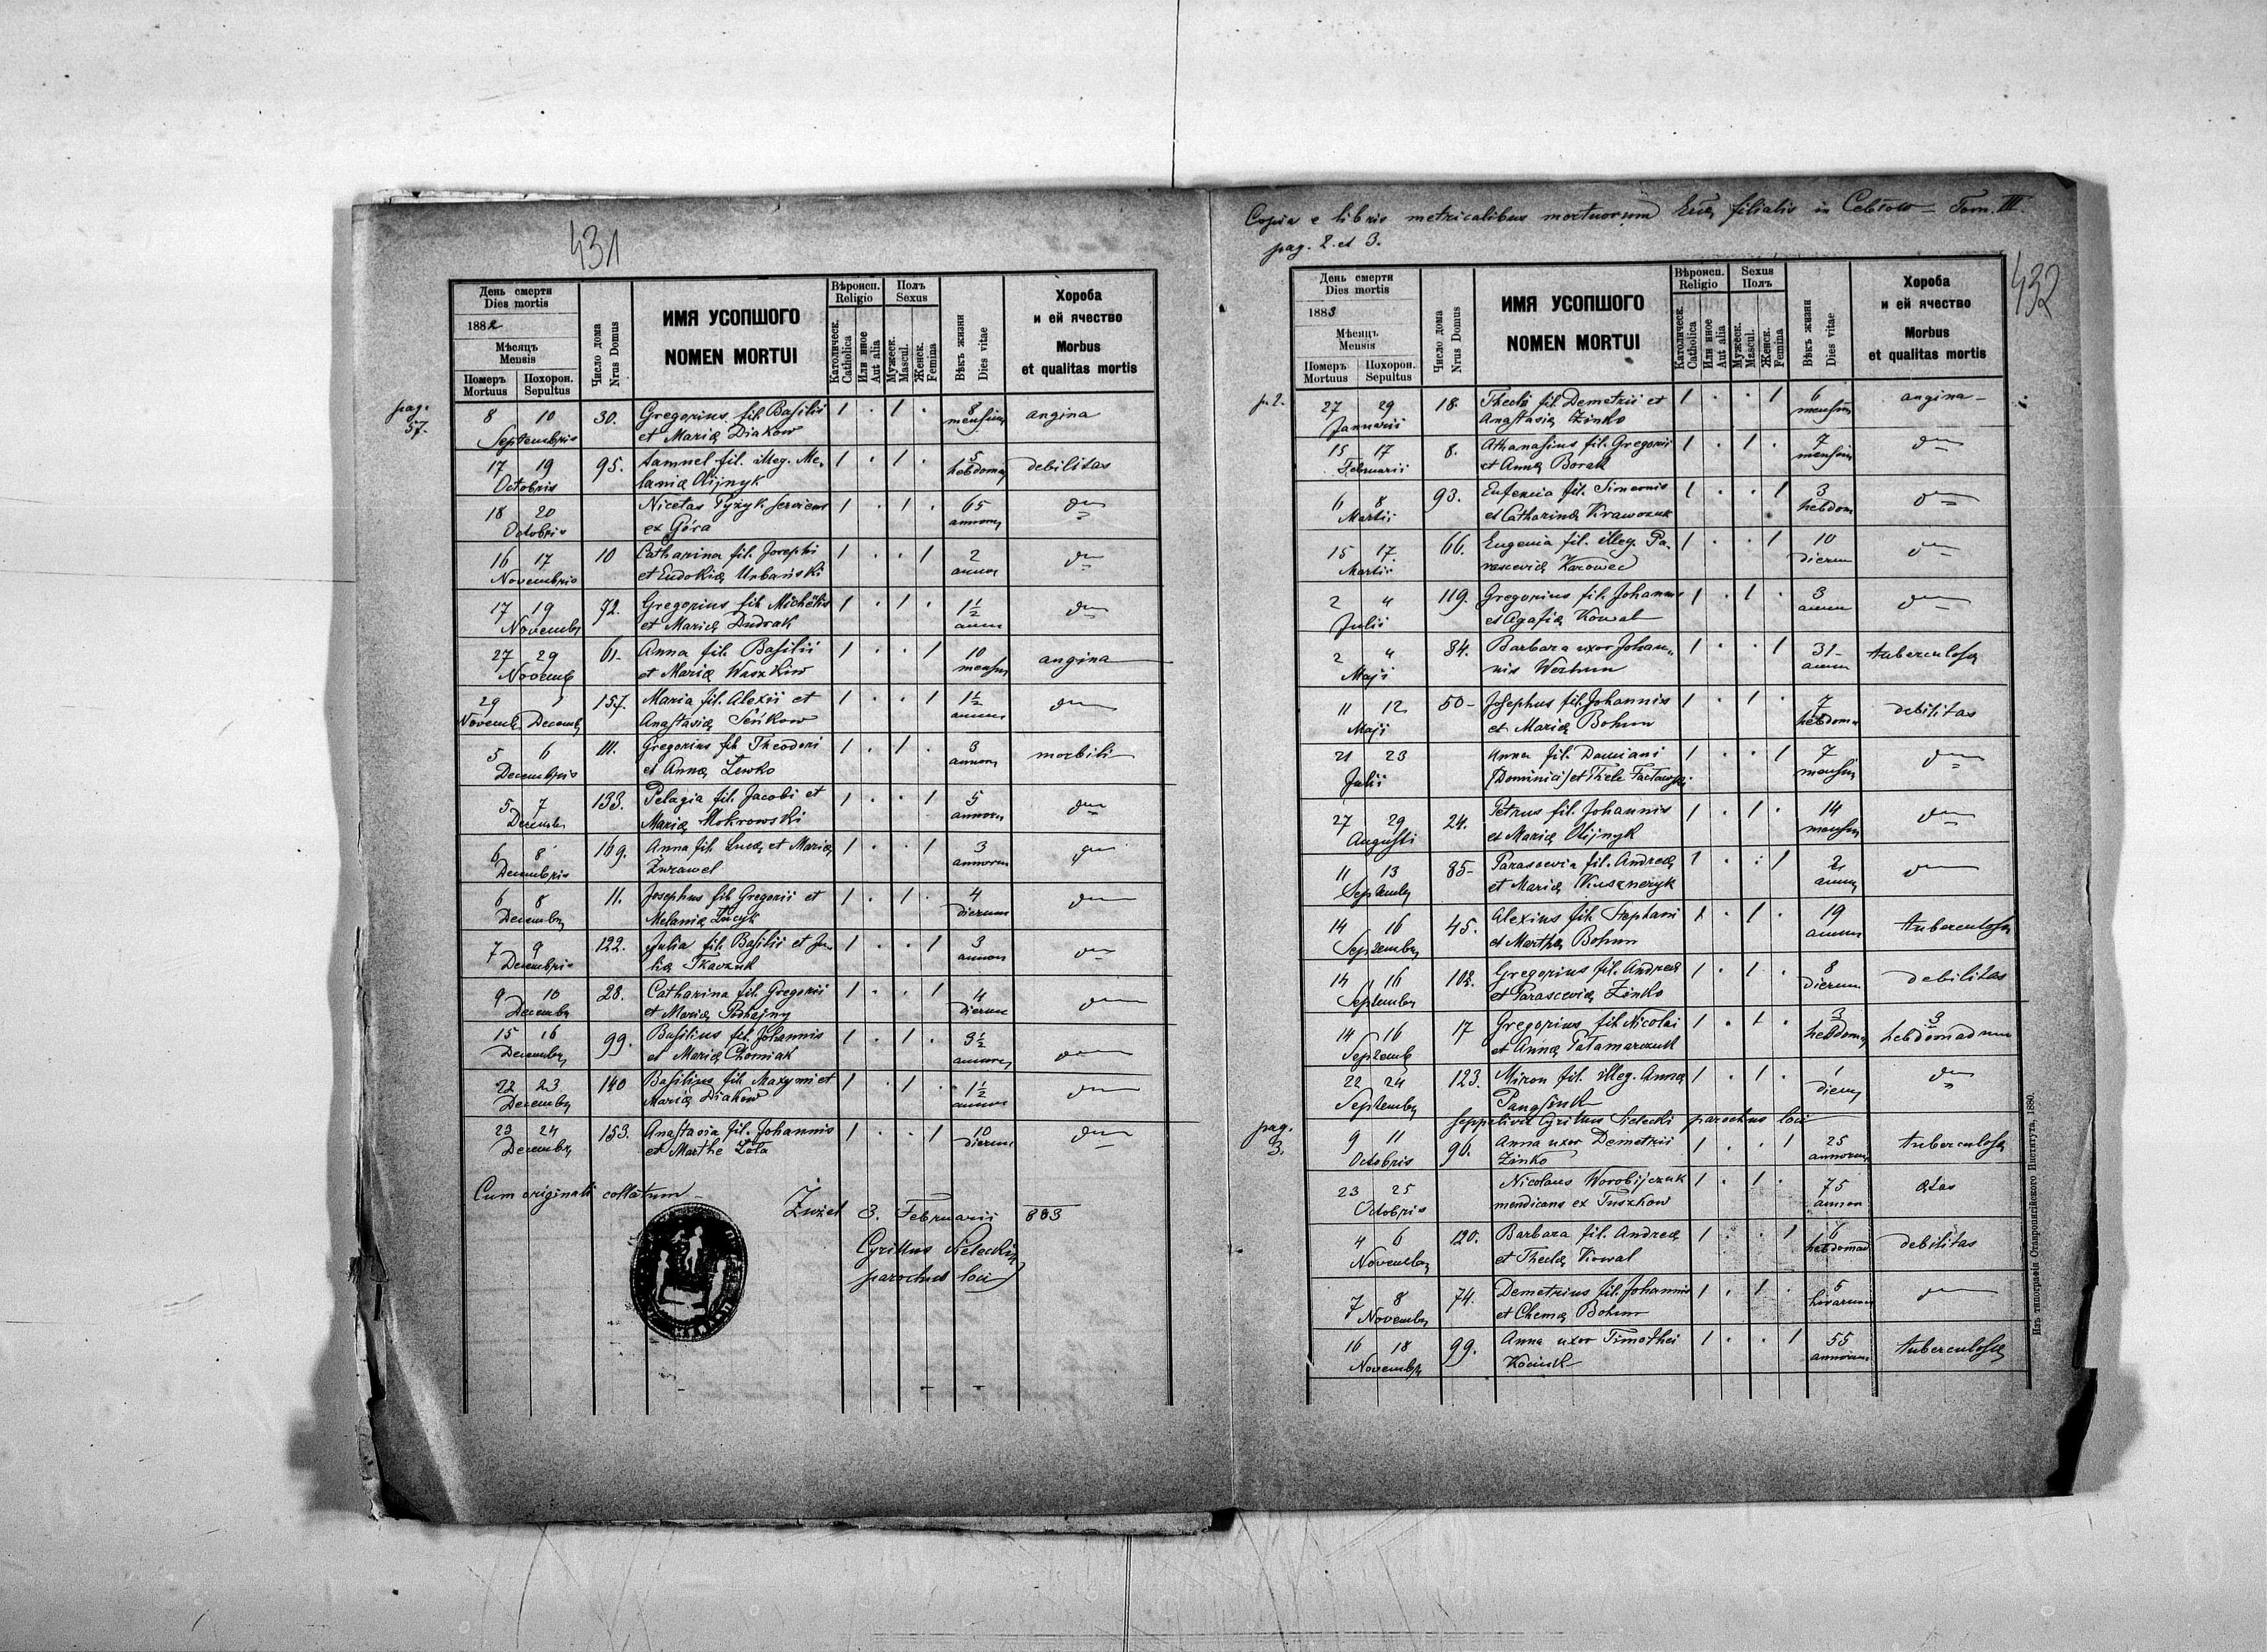 431
День смерти
Dies mortis
1882
Мѣсяцъ
Mensis
Померъ Похорон.
Mortuus Sepultus
Число дома
Nrus Domus
ИМЯ УСОПШОГО
NOMEN MORTUI
Вѣроисп.
Religio
Католическ.
Catholica
Или иное
Aut alia
Полъ
Sexus
Мужеск.
Mascul.
Женск.
Femina
Вѣкъ жизни
Dies vitae
Хороба
и ей ячество
Morbus
et qualitas mortis
pag.
57.
8 10 30. Gregorius fil. Basilii 1 . 1 . 8 angina
Septembris et Mariæ Diakow mensium
17 19 95. Samuel fil. illeg. Me- 1 . 1 . 5 debilitas
Octobris laniæ Olijnyk hebdomad
18 20 Nicetas Pyzyk serviens 1 . 1 . 65 dto
Octobris ex Góra annorum
16 17 10 Catharina fil. Josephi 1 . . 1 2 dto
Novembris et Eudokiæ Urbański annor
17 19 72. Gregorius fil. Michaelis 1 . 1 . 1½ dto
Novembr et Mariæ Dudrak anni
27 29 61. Anna fil. Basilii 1 . . 1 10 angina
Novemb et Mariæ Waszkiw mensium
29 1 157. Maria fil. Alexii et 1 . . 1 1½ dto
Novemb Decemb Anastasiæ Señkow annor
5 6 111. Gregorius fil. Theodori 1 . 1 . 3 morbili
Decembris et Annæ Lewko annor
5 7 133. Pelagia fil. Jacobi et 1 . . 1 5 dto
Decembr Mariæ Mokrowski annor
6 8 169. Anna fil. Lucæ et Mariæ 1 . . 1 3 dto
Decembris Żurawel annorum
6 8 11. Josephus fil. Gregorii et 1 . 1 . 4 dto
Decembr Melaniæ Łucyk dierum
7 9 122. Julia fil. Basilii et Ju- 1 . . 1 3 dto
Decembris liæ Tkaczuk annor
9 10 28. Catharina fil. Gregorii 1 . . 1 4 dto
Decembr et Mariæ Podhajny dierum
15 16 99. Basilius fil. Johannis 1 . 1 . 3½ dto
Decembr et Mariæ Chomiak annorum
22 23 140 Basilius fil. Maxymi et 1 . 1 . 1½ dto
Decembr Mariæ Diakow annor
23 24 153. Anastasia fil. Johannis 1 . . 1 10 dto
Decembr et Marthe Zola dierum
Cum originali collatum
Żużel 3. Februarii 883
Cyrillus Sielecki
parochus loci
Copia e libris metricalibus mortuorum Eccl. filialis in Cebłow Tom. III.
pag. 2. et 3.
432
День смерти
Dies mortis
1883
Мѣсяцъ
Mensis
Померъ Похорон.
Mortuus Sepultus
Число дома
Nrus Domus
ИМЯ УСОПШОГО
NOMEN MORTUI
Вѣроисп.
Religio
Католическ.
Catholica
Или иное
Aut alia
Sexus
Полъ
Мужеск.
Mascul.
Женск.
Femina
Вѣкъ жизни
Dies vitae
Хороба
и ей ячество
Morbus
et qualitas mortis
p. 2.
27 29 18. Thecla fil. Demetrii et 1 . . 1 6 angina
Januarii Anastasiæ Zinko mensium
15 17 8. Athanasius fil. Gregorii 1 . 1 . 7 dto
Februarii et Annæ Borak mensium
6 8 93. Eufemia fil. Simeonis 1 . . 1 3 dto
Martii et Catharinæ Krawczuk hebdom
15 17 66. Eugenia fil. illeg. Pa- 1 . . 1 10 dto
Martii rasceviæ Karowec dierum
2 4 119. Gregorius fil. Johannis 1 . 1 . 3 dto
Julii et Agafiæ Kowal annor
2 4 34. Barbara uxor Johan- 1 . . 1 31 tuberculosa
Maji nis Werbun annor
11 12 50 Josephus fil. Johannis 1 . 1 . 7 debilitas
Maji et Mariæ Bohun hebdom
21 23 Anna fil. Damiani 1 . . 1 7 dto
Julii (Dominici) et Thecle mensium
27 29 24. Petrus fil. Johannis 1 . 1 . 14 dto
Augusti et Mariæ Olijnyk mensium
11 13 85 Parascevia fil. Andreæ 1 . . 1 2 dto
Septembr et Mariæ Kuszneryk annor
14 16 45. Alexius fil. Stephani 1 . 1 . 19 tuberculosa
Septembr et Marthæ Bohun annor
14 16 102. Gregorius fil. Andreæ 1 . 1 . 8 debilitas
Septembr et Parasceviæ Zinko dierum
14 16 17 Gregorius fil. Nicolai 1 . 1 . 3 3
Septemb et Annæ Pałamarczuk hebdom hebdomadum
22 24 123. Miron fil. illeg. Annæ 1 . 1 . 1 dto
Septembr diem
seppelivit Cyrillus Sielecki parochus loci
pag.
3.
9 11 90. Anna uxor Demetrii 1 . . 1 25 tuberculosa
Octobris Zinko annorum
23 25 Nicolaus Worobijczuk 1 . 1 . 75 ætas
Octobris mendicans ex Tuszkow annor
4 6 120. Barbara fil. Andreæ 1 . . 1 6 debilitas
Novembr et Theclæ Kowal hebdomad
7 8 74. Demetrius fil. Johannis 1 . 1 . 5 dto
Novembr et Bohun horarum
16 18 99. Anna uxor Timothei 1 . . 1 55 tuberculosa
Novembr annorum
Изъ типографіи Ставропигійского Института, 1880.